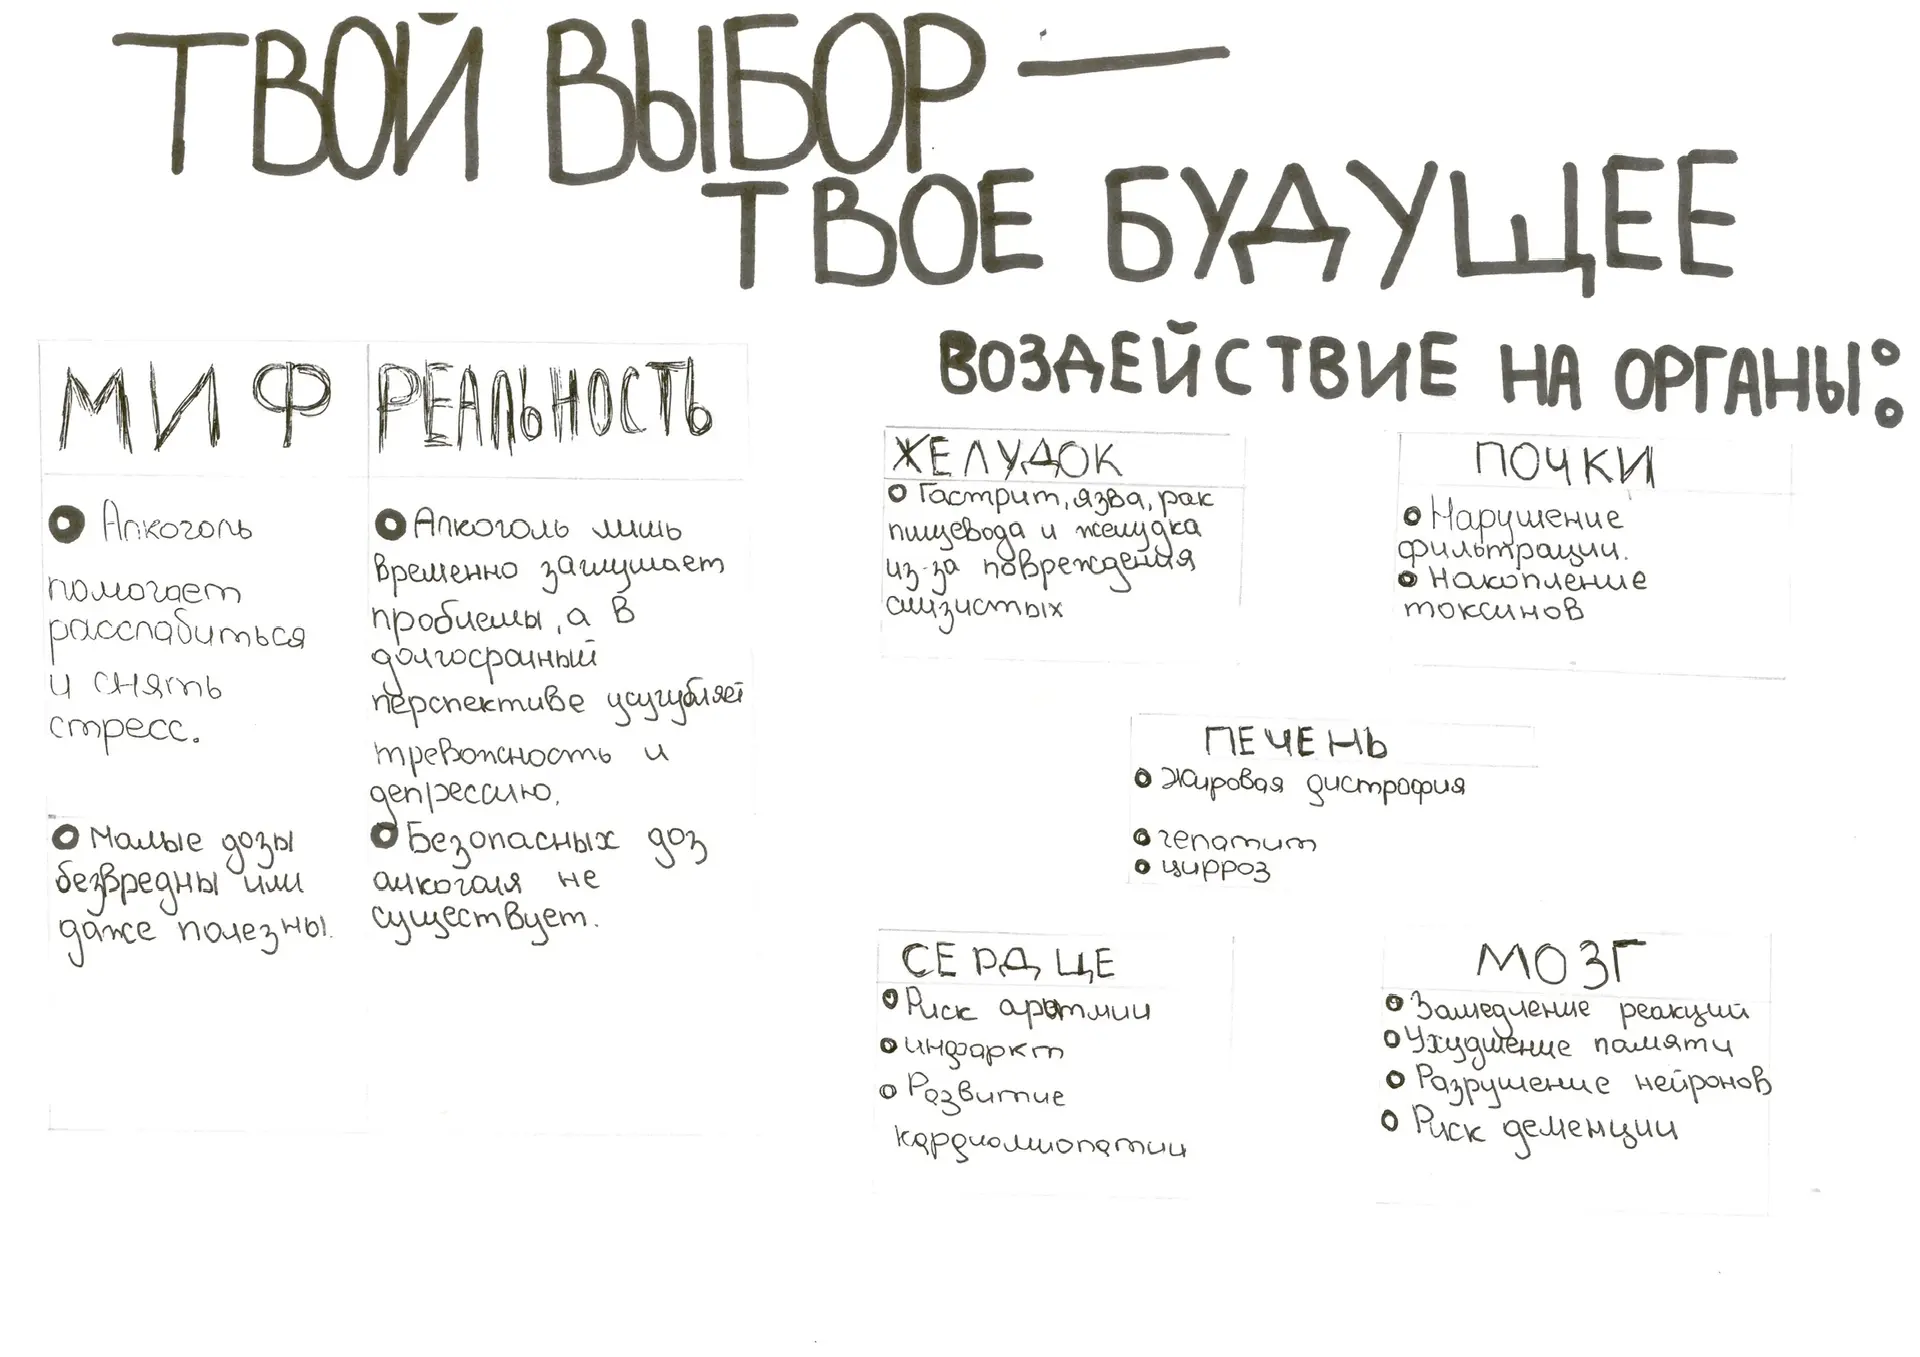 ТВОЙ ВЫБОР —
ТВОЕ БУДУЩЕЕ
МИФ
РЕАЛЬНОСТЬ
Алкоголь
помогает
расслабиться
и снять
стресс.
Алкоголь лишь
временно заглушает
проблемы, а в
долгосрочный
перспективе усугубляет
тревожность и
депрессию.
Малые дозы
безвредны или
даже полезны.
Безопасных доз
алкоголя не
существует.
ВОЗДЕЙСТВИЕ НА ОРГАНЫ:
ЖЕЛУДОК
Гастрит, язва, рак
пищевода и желудка
из-за повреждения
слизистых
ПОЧКИ
Нарушение
фильтрации.
Накопление
токсинов
ПЕЧЕНЬ
Жировая дистрофия
гепатит
цирроз
СЕРДЦЕ
Риск аритмии
инфаркт
Развитие
кардиомиопатии
МОЗГ
Замедление реакций
Ухудшение памяти
Разрушение нейронов
Риск деменции